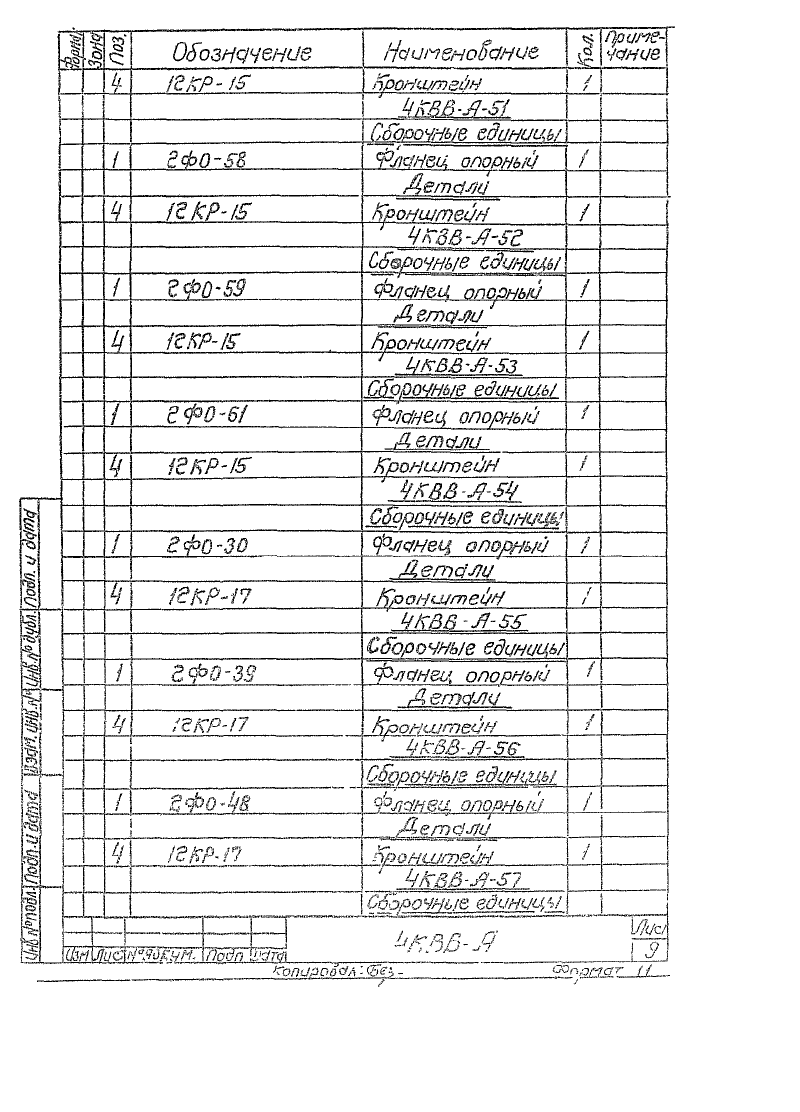 Форм. Зона Поз. Обозначение Наименование Кол. Приме-чание
4 12КР-15 Кронштейн 1
4КВВ-А-51
Сборочные единицы
1 2ФО-58 Фланец опорный 1
Детали
4 12КР-15 Кронштейн 1
4КВВ-А-52
Сборочные единицы
1 2ФО-59 Фланец опорный 1
Детали
4 12КР-15 Кронштейн 1
4КВВ-А-53
Сборочные единицы
1 2ФО-61 Фланец опорный 1
Детали
4 12КР-15 Кронштейн 1
4КВВ-А-54
Сборочные единицы
1 2ФО-30 Фланец опорный 1
Детали
4 12КР-17 Кронштейн 1
4КВВ-А-55
Сборочные единицы
1 2ФО-39 Фланец опорный 1
Детали
4 12КР-17 Кронштейн 1
4КВВ-А-56
Сборочные единицы
1 2ФО-48 Фланец опорный 1
Детали
4 12КР-17 Кронштейн 1
4КВВ-А-57
Сборочные единицы
Инв.№подл. Подп. и дата Взам. инв.№ Инв.№дубл. Подп. и дата
Изм Лист №докум. Подп. Дата
4КВВ-А
Лис
9
Копировал: Формат 11